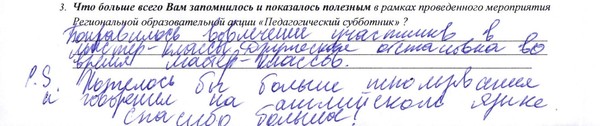 3. Что больше всего Вам запомнилось и показалось полезным в рамках проведенного мероприятия
Региональной образовательной акции «Педагогический субботник» ?
Понравилось вовлечение участников в
мастер-классы. Дружеская обстановка во
время мастер-классов.
P.S. Хотелось бы больше
и говорения на английском языке.
Спасибо большое!